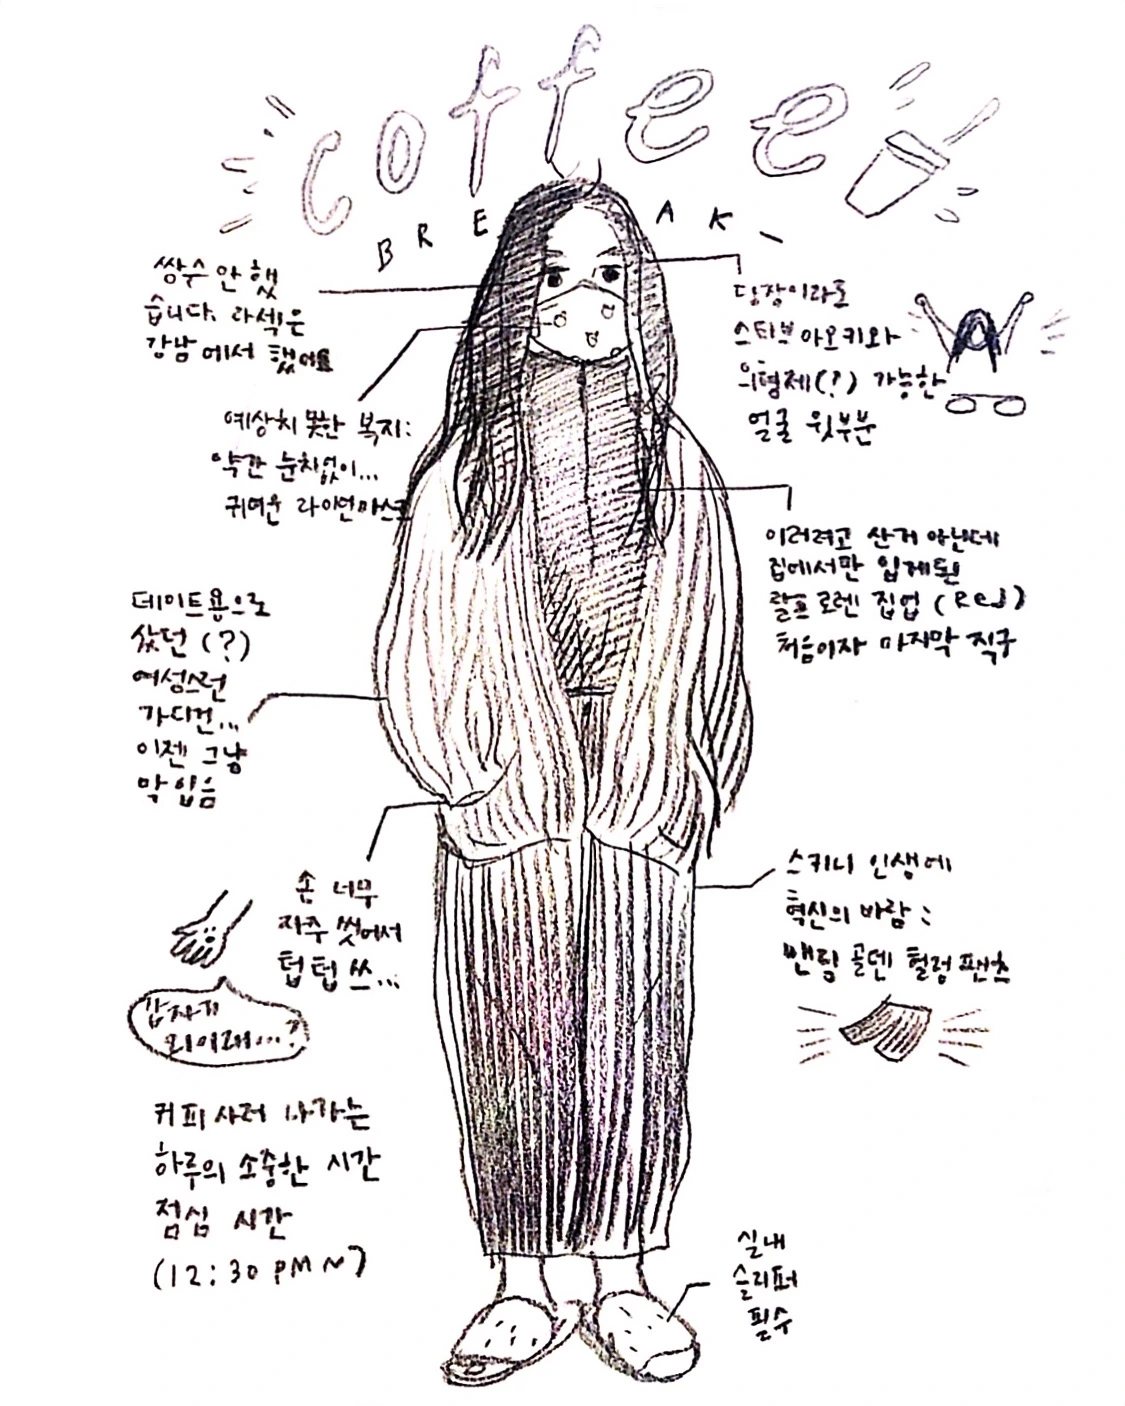 coffee
BREAK
쌍수 안 했
습니다. 라섹은
강남에서 했어요
당장이라도
스티브 아오키와
의형제(?) 가능한
얼굴 윗부분
예상치 못한 복지:
약간 눈치없이...
귀여운 라이언마스크
이러려고 산거 아닌데
집에서만 입게된
랄프로렌 집업 (Red)
처음이자 마지막 직구
데이트용으로
샀던 (?)
여성스런
가디건...
이젠 그냥
막 입음
손 너무
자주 씻어서
텁텁쓰...
갑자기
왜이래...?
스키니 인생에
혁신의 바람:
밴딩 골덴 헐렁팬츠
커피 사러 나가는
하루의 소중한 시간
점심 시간
(12:30 PM ~)
실내
슬리퍼
필수